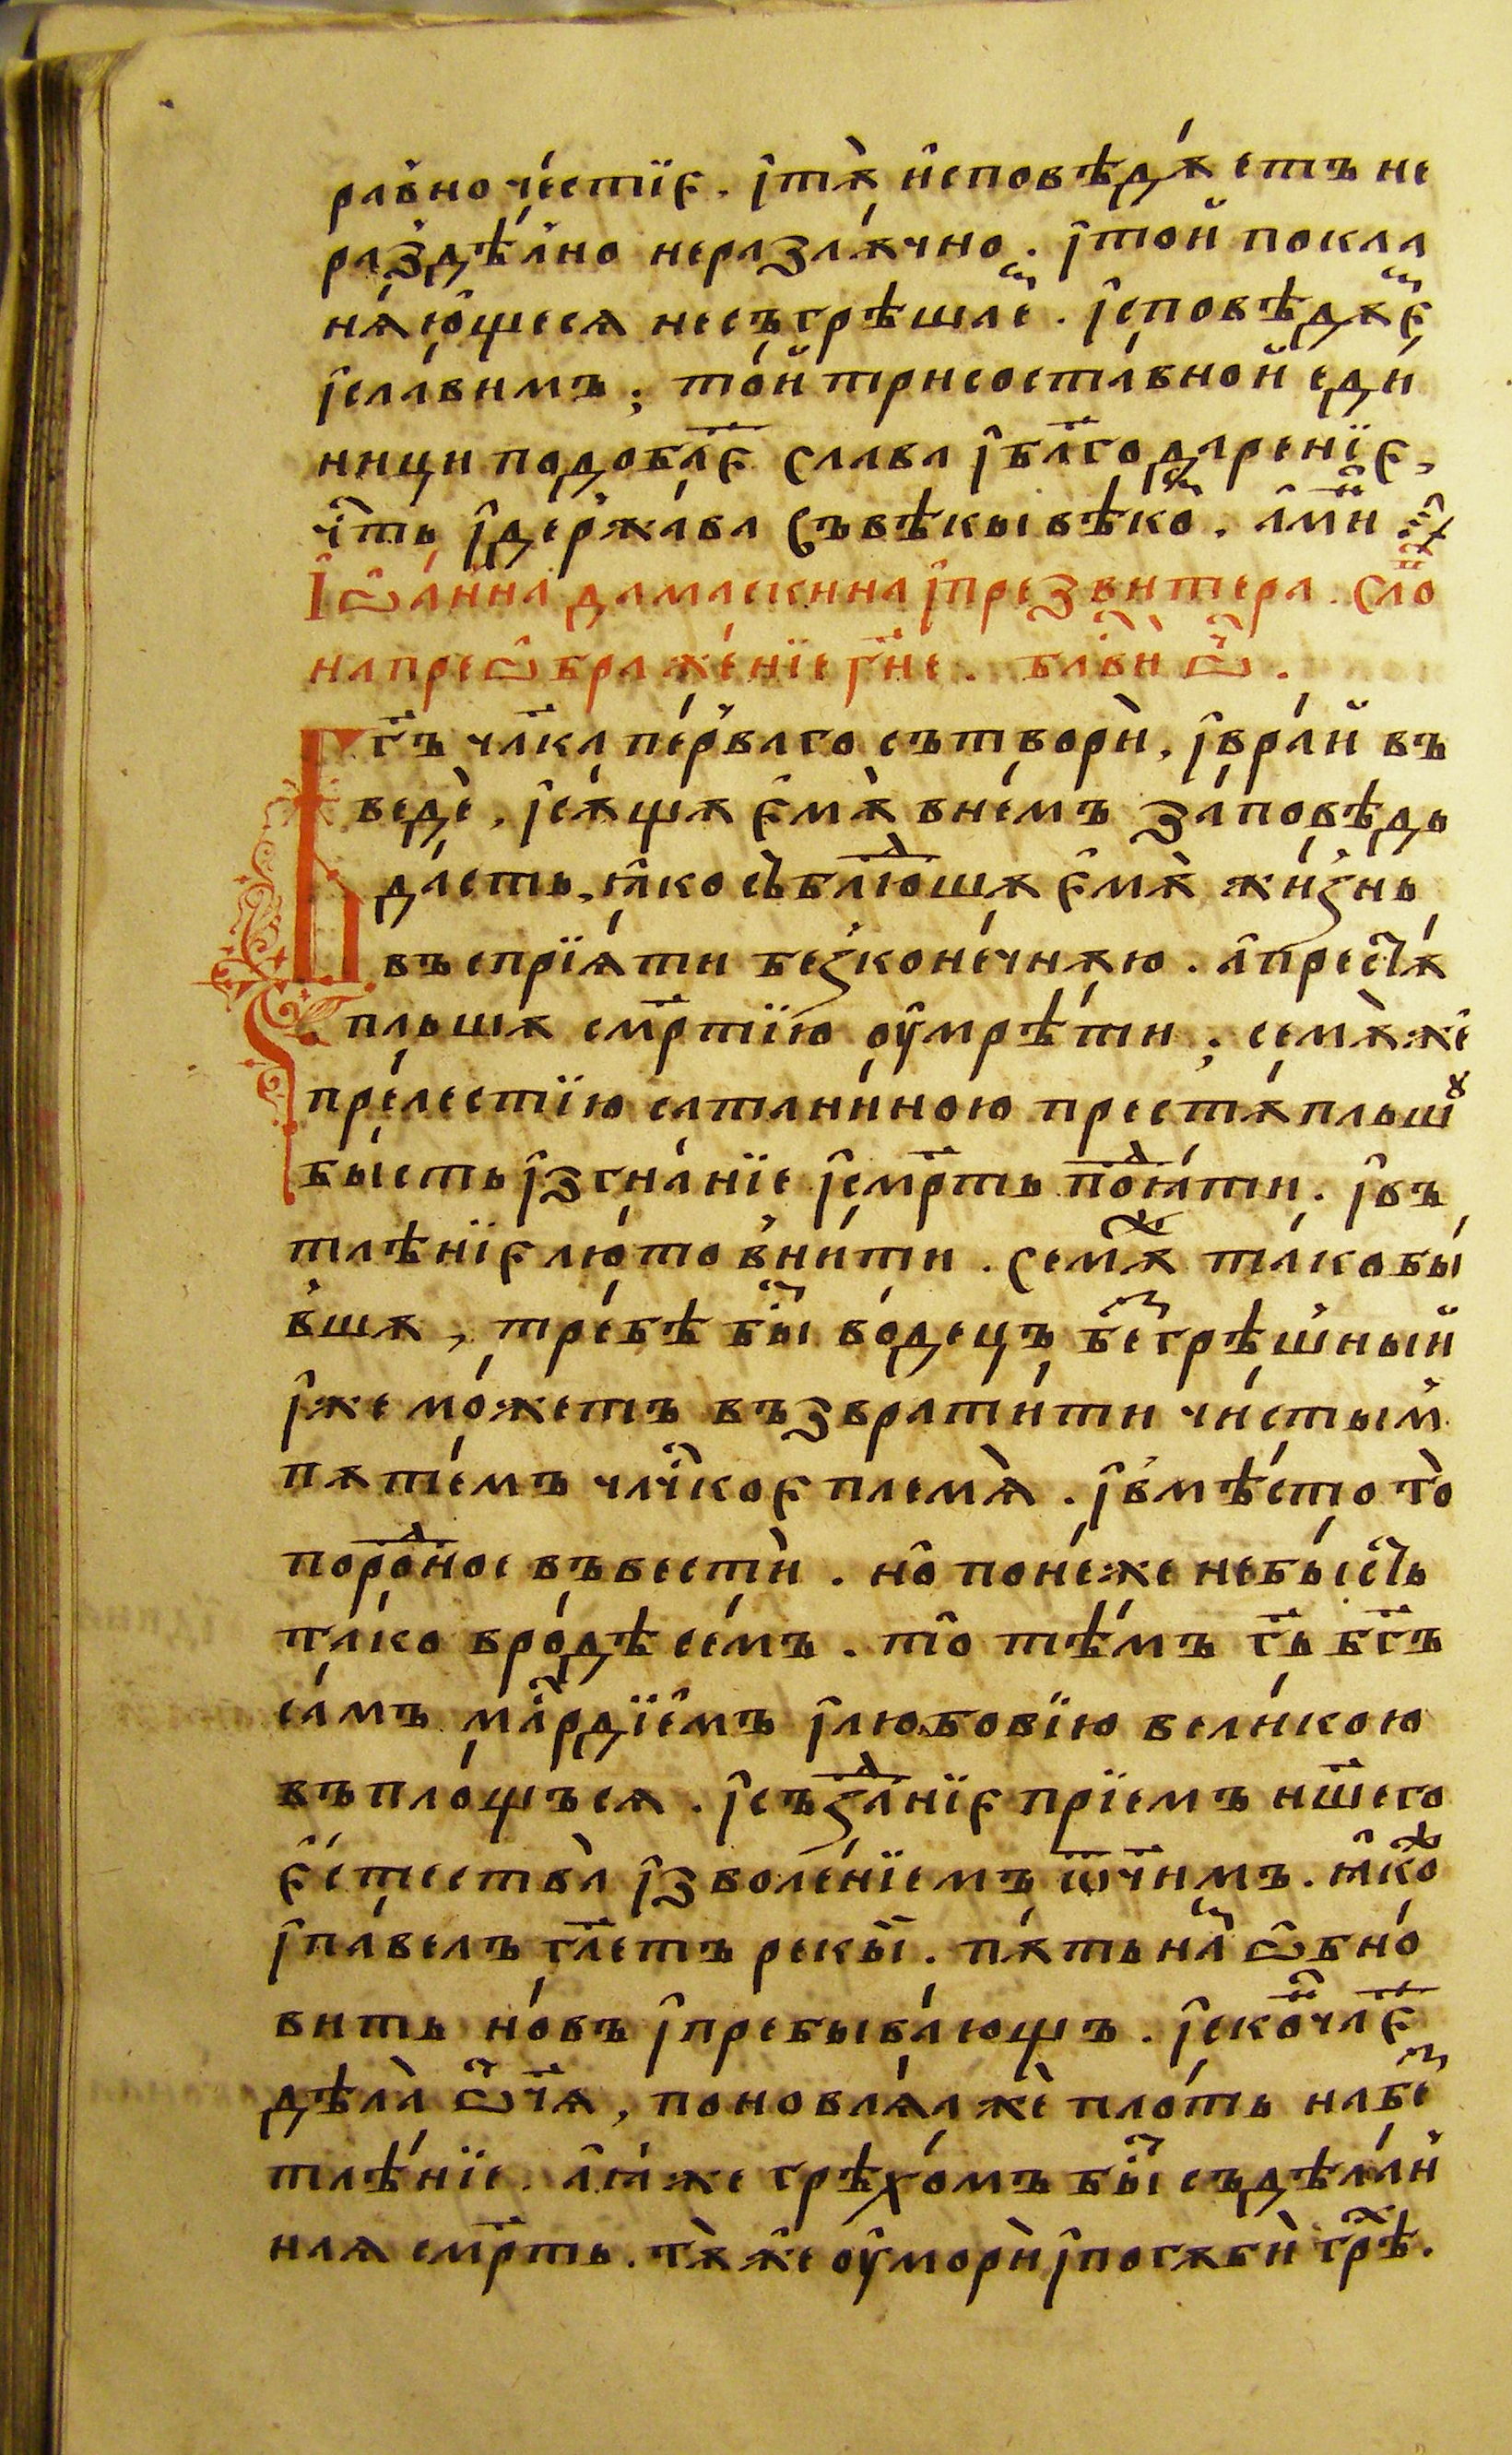 ра́вночⷭ҇тїе . і҆тꙋ̀ и҆сповѣ́дꙋетъ не
раздѣ́лно неразлꙋ́чно . і҆то́й покла
нѧ́ющесѧ несъгрѣша́еⷨ . і҆сповѣ́дꙋеⷨ
і҆сла́вимъ ; то́й трисоста́вной єди́
ници подоба́еⷮ слава і҆бл҃годаре́нїе ,
чⷭ҇ть і҆держа́ва съвѣ́кы вѣко́ⷨ . а҆ми́ⷩ
І҆ѡ҆а́нна дамаскина і҆презвитера . сло́
на преѡ҆браже́нїе гн҃е . бл҃ви ѡ҆́ч҃ .
Гь҃ чл҃ка пе́рваго сътворѝ , і҆вра́й въ
ведѐ , і҆сꙋ́щꙋ є҆мꙋ̀ вне́мъ за́повѣдь
да́сть , ꙗ҆́ко съблю́дшꙋ є҆мꙋ̀ жи́знь
въспрїѧ́ти безконе́чнꙋю . а҆престꙋ́
пльшꙋ см҃ртїю оу҆мрѣ́ти ; семꙋ́же
пре́лестїю сатани́ною престꙋпльшꙋ
бы́сть і҆згна́нїе і҆см҃рть поⷣꙗ́ти . і҆въ
тлѣ́нїе лю́то вни́ти . семꙋ́ⷤ та́ко бы́
вшꙋ , тре́бѣ быⷭ҇ во́децъ беⷥгрѣ́шный
і҆́же мо́жетъ възврати́ти чи́стым
пꙋте́мъ члч҃кое племѧ̀ . і҆вмѣ́сто то̀
поро́ⷣное въвестѝ . но̂ поне́же небы́сть
та́ко вро́дѣ се́мъ . то̂ тѣ́мъ гь҃ бг҃ъ
са́мъ млⷭ҇рдїемъ і҆любовїю вели́кою
въпло́щъсѧ . і҆съзⷣа́нїе прїемъ нш҃его
є҆стества̀ і҆зволе́нїемъ ѡ҆ч҃имъ . ꙗ҆́коⷤ
і҆па́велъ гл҃етъ рекы̀ . пꙋ́ть на́ⷨ ѡ҆бно́
вить но́въ і҆пребыва́ющъ . і҆сконча́еⷮ
дѣла̀ ѡ҆ч҃ꙗ , поновлѧ́ѧ жѐ пло́ть на беⷥ
тлѣ́нїе . а҆ꙗ҆́же грѣхо́мъ быⷭ҇ съдѣ́лан
наѧ см҃рть . тꙋ̀же оу҆морѝ і҆погꙋбѝ грѣⷯ .